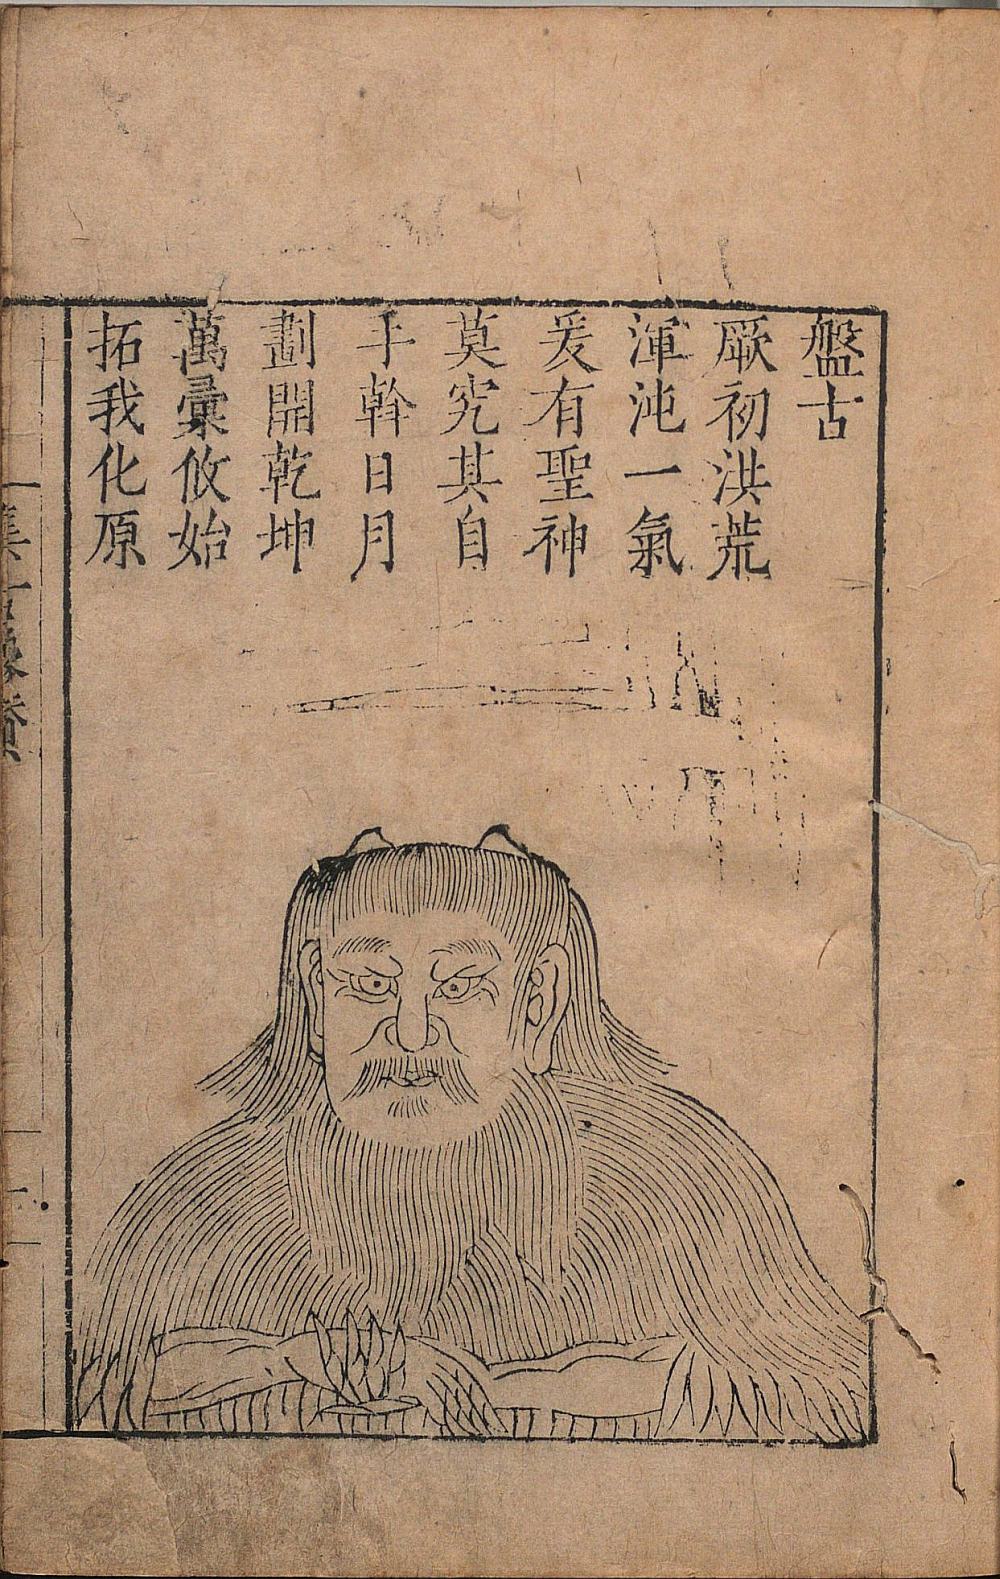 盤古
厥初洪荒
渾沌一氣
爰有聖神
莫究其自
手斡日月
劃開乾坤
萬彙攸始
拓我化原